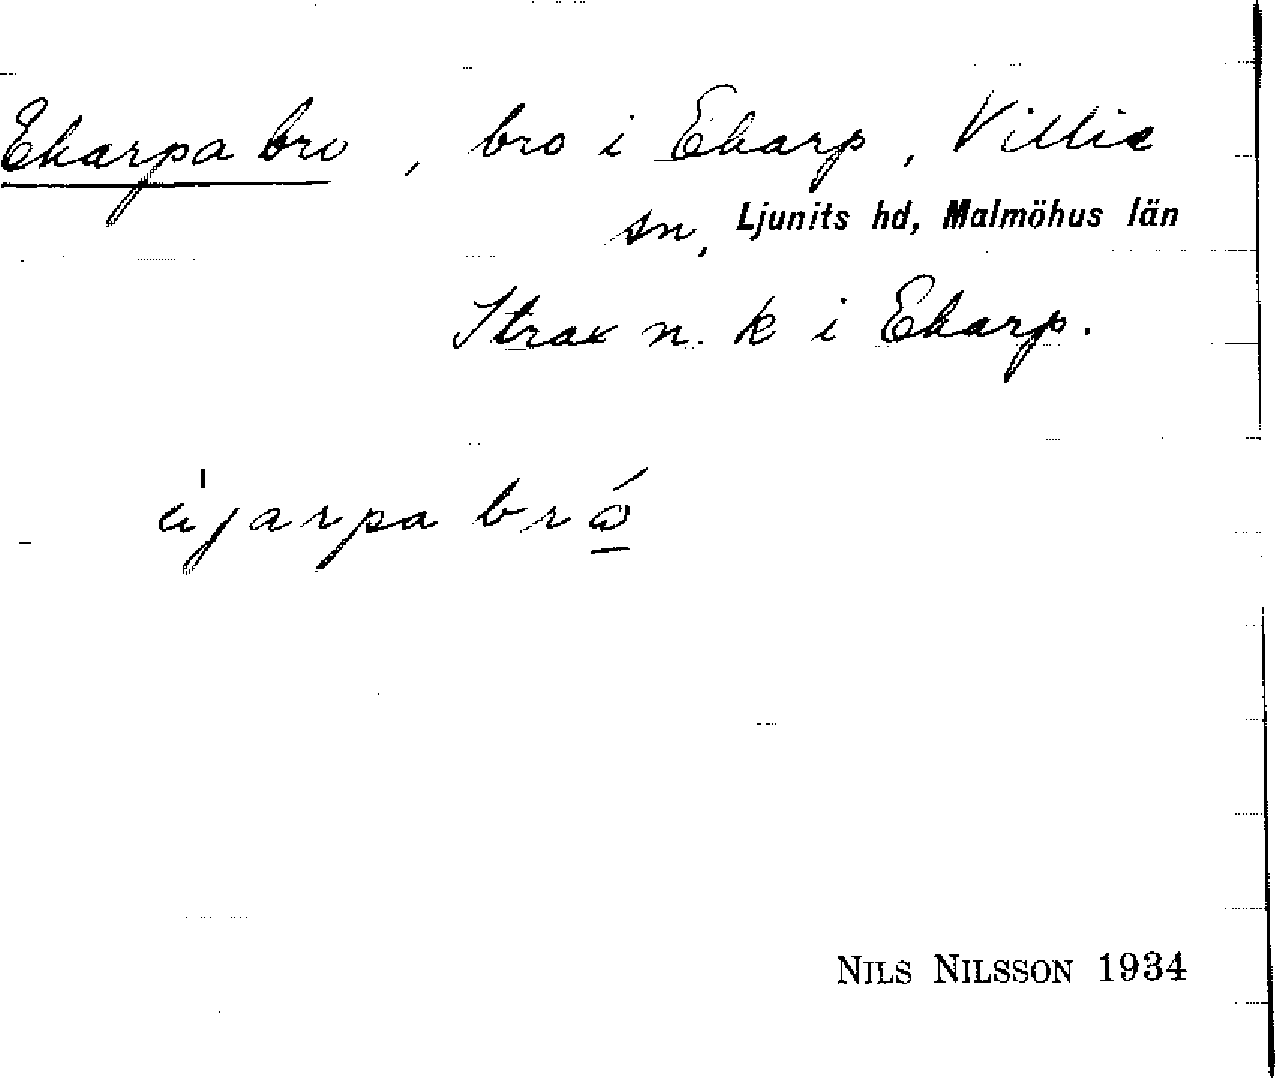 Ekarpa bro, bro i Ekarp, Villie
sn, Ljunits hd, Malmöhus län
Strax n. k i Ekarp.
bró
NILS NILSSON 1934